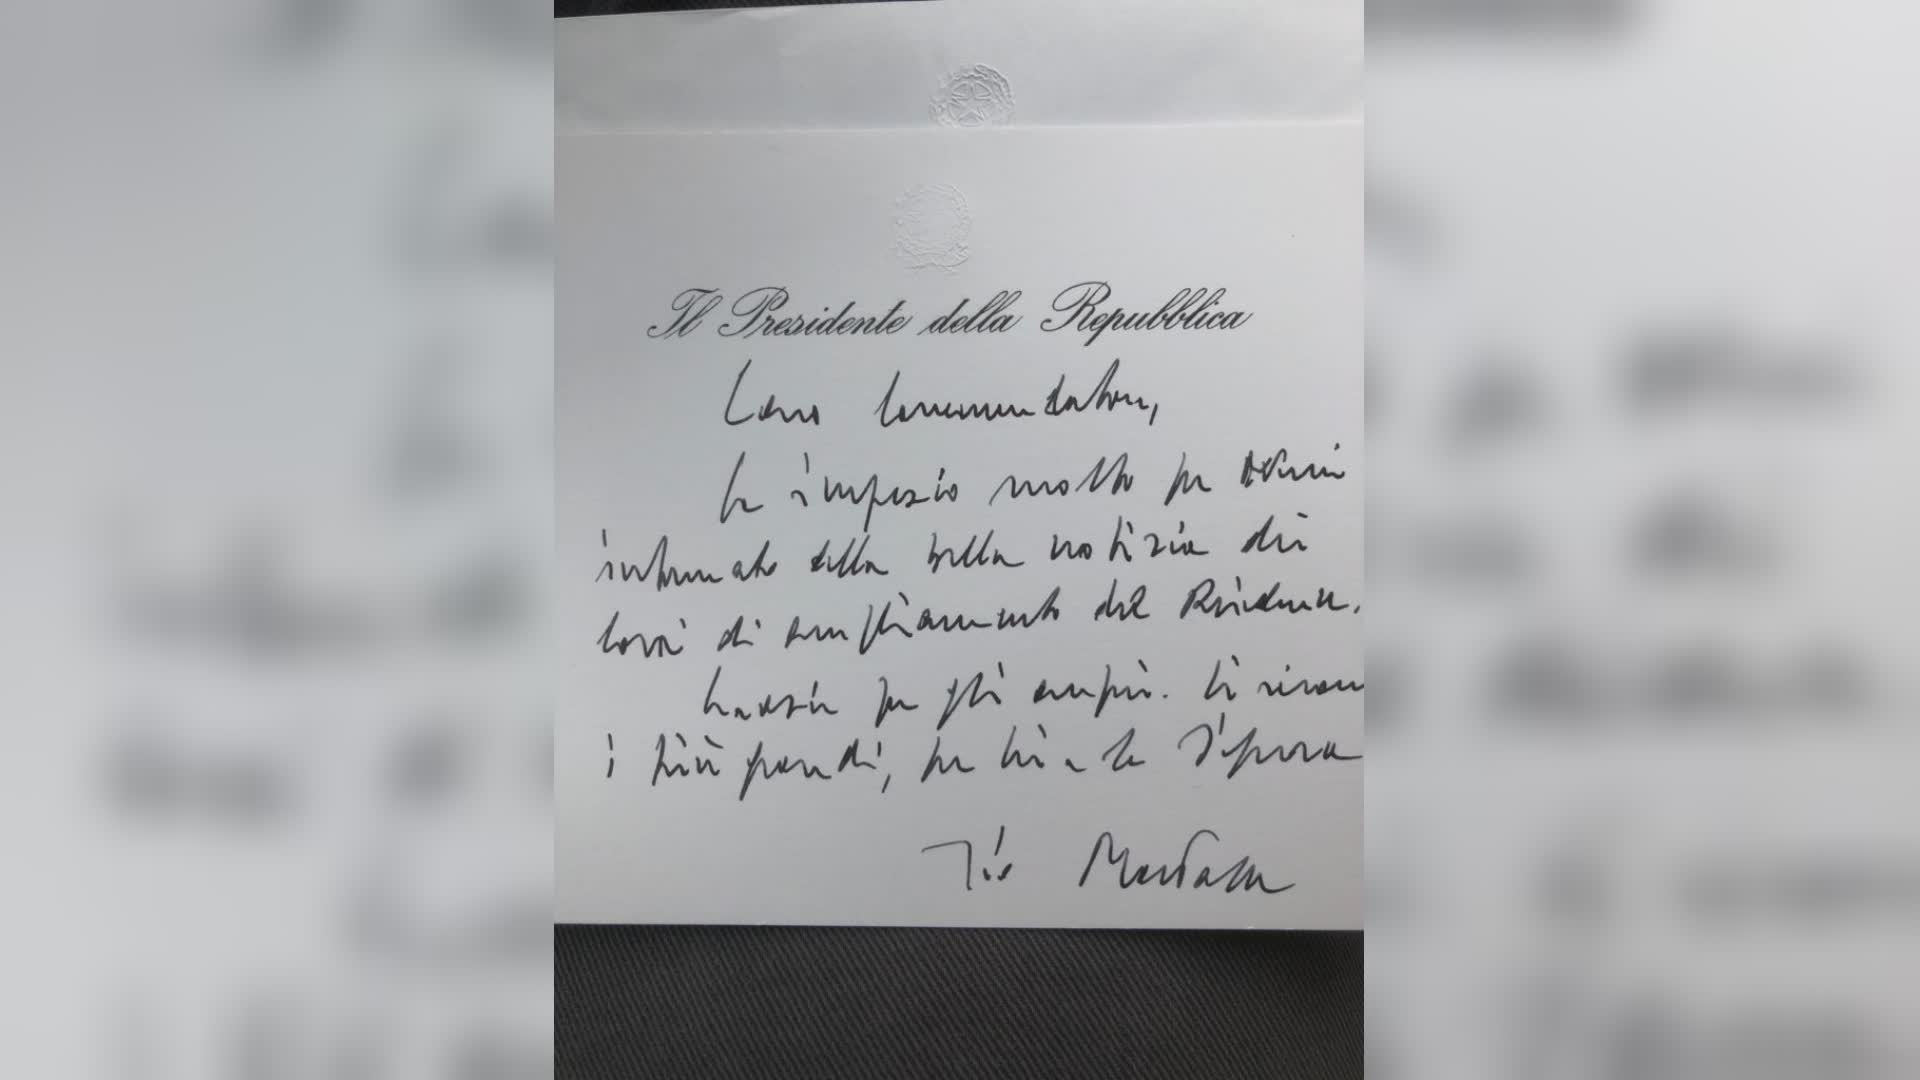 Il Presidente della Repubblica
Caro Commendatore,
La ringrazio molto per avermi
informato della bella notizia dei
lavori di ampliamento del
Grazie per gli auguri. Li ricambio
i più grandi, per Lei e la Signora
Suo Mattarella